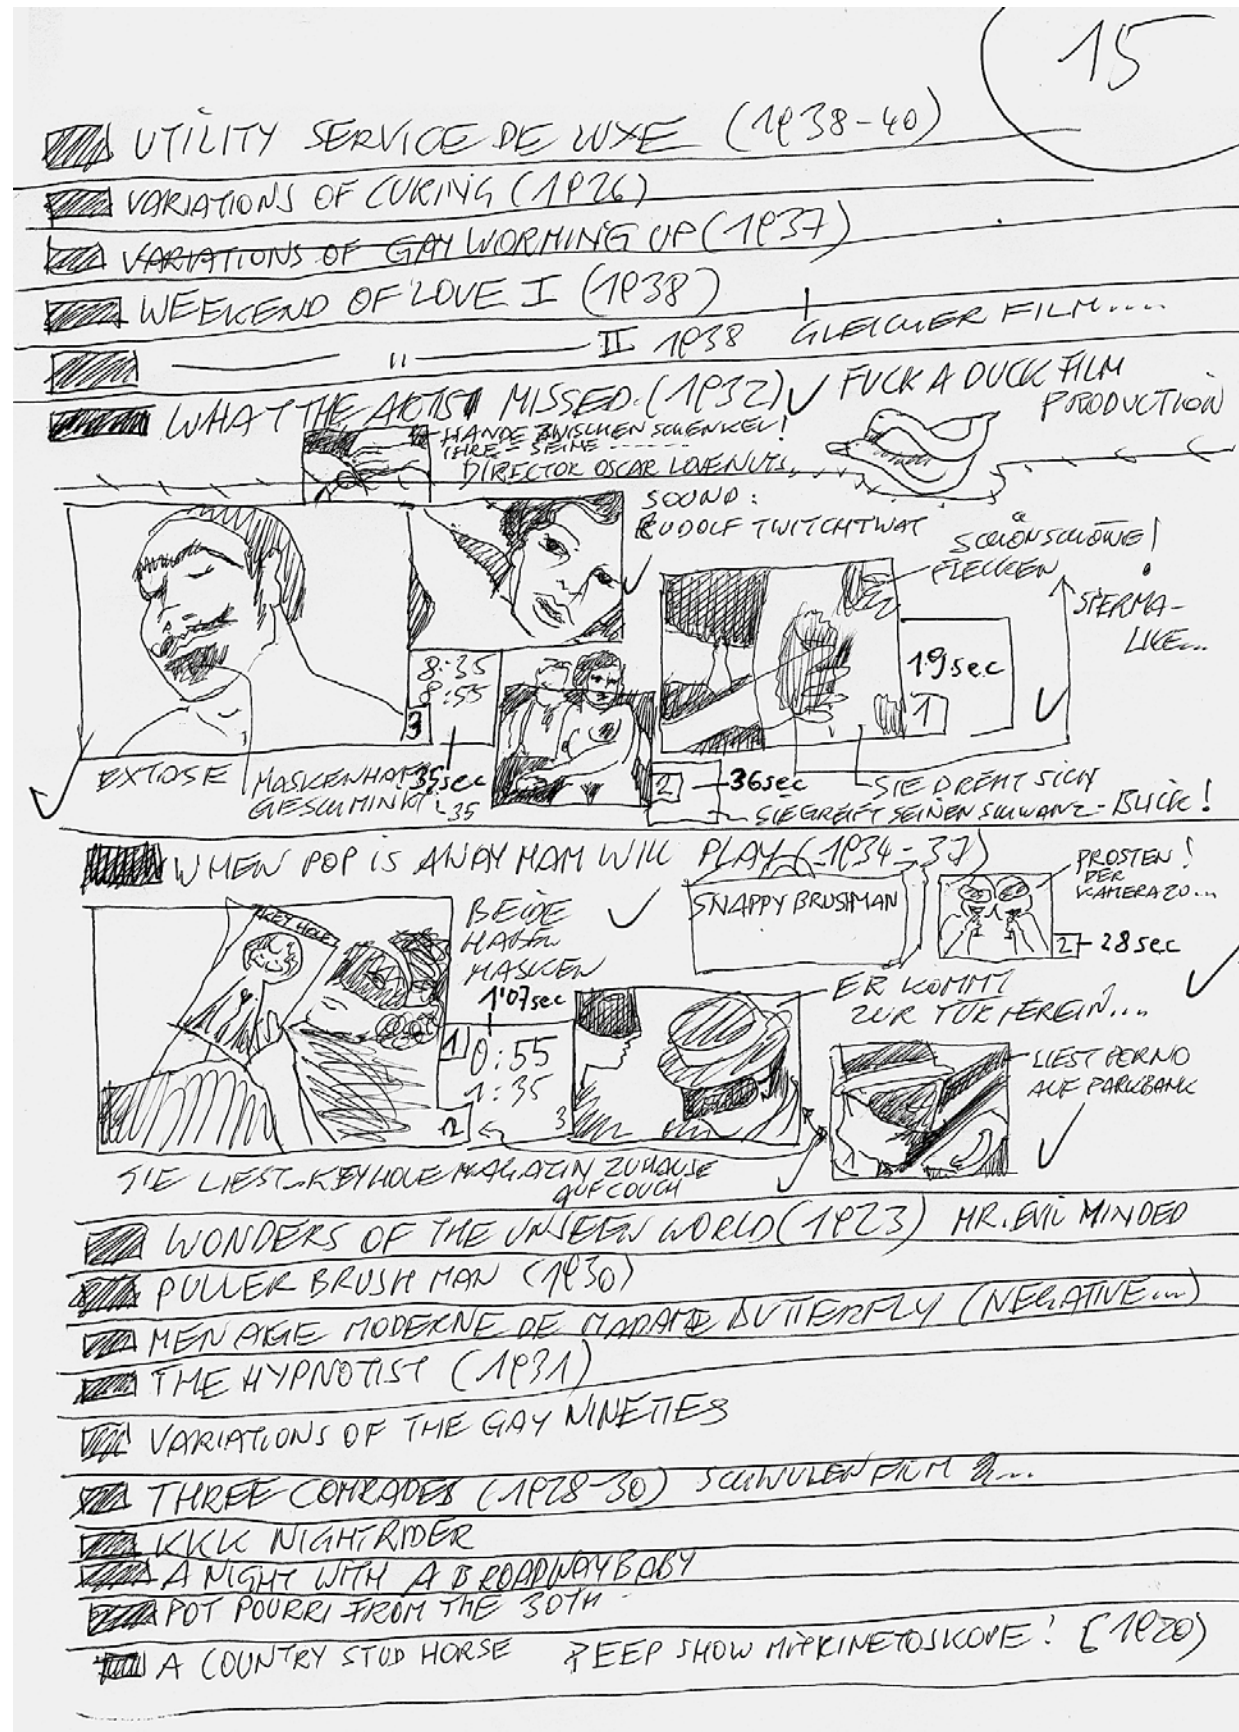 15
UTILITY SERVICE DE LUXE (1938-40)
VARIATIONS OF CURING (1926)
VARIATIONS OF GAY WORMING UP (1937)
WEEKEND OF LOVE I (1938)
GLEICHER FILM.....
—— " —— II 1938
WHAT THE ARTIST MISSED. (1932) ✓ FUCK A DUCK FILM
PRODUCTION
HÄNDE ZWISCHEN SCHENKEL!
IHRE - SEINE
DIRECTOR OSCAR LOVENUTS
SOUND:
RUDOLF TWITCHTWAT
SCHÖN SCHÖNE!
FLECKEN
SPERMA-
LIKE...
8:35
8:55
3
19sec
1
EXTASE
MASKENHAFT
GESCHMINKT
35sec
35
2
36sec
SIE DREHT SICH
SIE GREIFT SEINEN SCHWANZ - BLICK!
WHEN POP IS AWAY MAM WILL PLAY (1934-37)
SNAPPY BRUSHMAN
PROSTEN!
DER
KAMERA ZU...
2
28sec
KEY HOLE
BEIDE
HABEN
MASKEN
1'07sec
1
0:55
1:35
3
12
ER KOMMT
ZUR TÜR HEREIN....
LIEST PORNO
AUF PARKBANK
SIE LIEST KEYHOLE MAGAZIN ZUHAUSE
AUF COUCH
WONDERS OF THE UNSEEN WORLD (1923) MR. EVIL MINDED
PULLER BRUSH MAN (1930)
MENAGE MODERNE DE MADAME BUTTERFLY (NEGATIVE...)
THE HYPNOTIST (1931)
VARIATIONS OF THE GAY NINETIES
THREE COMRADES (1928-30) SCHWULEN FILM
KKK NIGHTRIDER
A NIGHT WITH A BROADWAYBABY
POT POURRI FROM THE 30TH
A COUNTRY STUD HORSE PEEP SHOW MIT KINETOSKOPE! (1920)